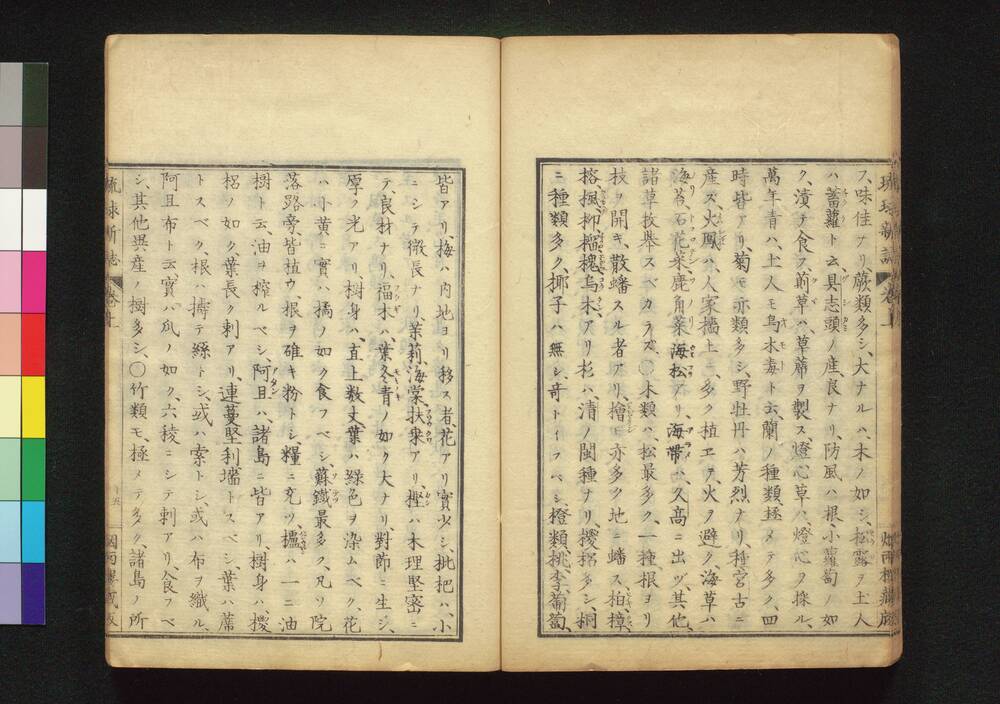 ス、味佳ナリ、蕨類多シ、大ナルハ、木ノ如シ、松露ヲ土人
ハ蓄蘿ト云、具志頭ノ産、良ナリ、防風ハ、根、小蘿蔔ノ如
ク、漬テ食フ、前草ハ、草蓆ヲ製ス、燈心草ハ、燈心ヲ採ル、
萬年青ハ、土人モ烏木毒ト云、蘭ノ種類極メテ多ク、四
時皆アリ、菊モ亦類多シ、野牡丹ハ芳烈ナリ、種宮古ニ
産ス、火鳳ハ、人家墻上ニ多ク植エテ、火ヲ避ク、海草ハ
海苔、石花菜、鹿角菜、海松アリ、海帶ハ、久高ニ出ヅ、其他、
諸草枚擧スベカラズ、○木類ハ、松最多ク、一種根ヨリ
枝ヲ開キ、散蟠スル者アリ、檜モ亦多ク地ニ蟠ス、柏、樟、
榕、楓、柳、櫂、槐、烏木、アリ、杉ハ、清ノ閩種ナリ、椶梠多シ、桐
ニ種類多ク、椰子ハ無シ、奇トイフベシ、橙類、桃、李、葡萄、
皆アリ、梅ハ内地ヨリ移ス者、花アリ實少シ、枇杷ハ、小
ニシテ微長ナリ、茉莉、海棠、扶桒アリ、樫ハ木理堅密ニ
テ、良材ナリ、福木ハ、葉冬青ノ如ク大ナリ、對節ニ生ジ、
厚ク光アリ、樹身ハ、直上数丈、葉ハ綠色ヲ染ムベク、花
ハ小黄ニ實ハ、橘ノ如ク食フベシ、蘇鐵最多ク、凡ソ院
落路旁、皆植ウ、根ヲ碓キ粉トシ、糧ニ充ツ、櫨ハ一ニ油
樹ト云、油ヲ榨ルベシ、阿且ハ、諸島ニ皆アリ、樹身ハ、椶
梠ノ如ク、葉長ク刺アリ、連蔓堅利、墻トスベシ、葉ハ蓆
トスベク、根ハ擣テ絲トシ、或ハ索トシ、或ハ布ヲ織ル、
阿且布ト云、實ハ瓜ノ如ク、六稜ニシテ刺アリ、食フベ
シ、其他異産ノ樹多シ、○竹類モ、極メテ多ク、諸島ノ所
琉球新誌 卷上